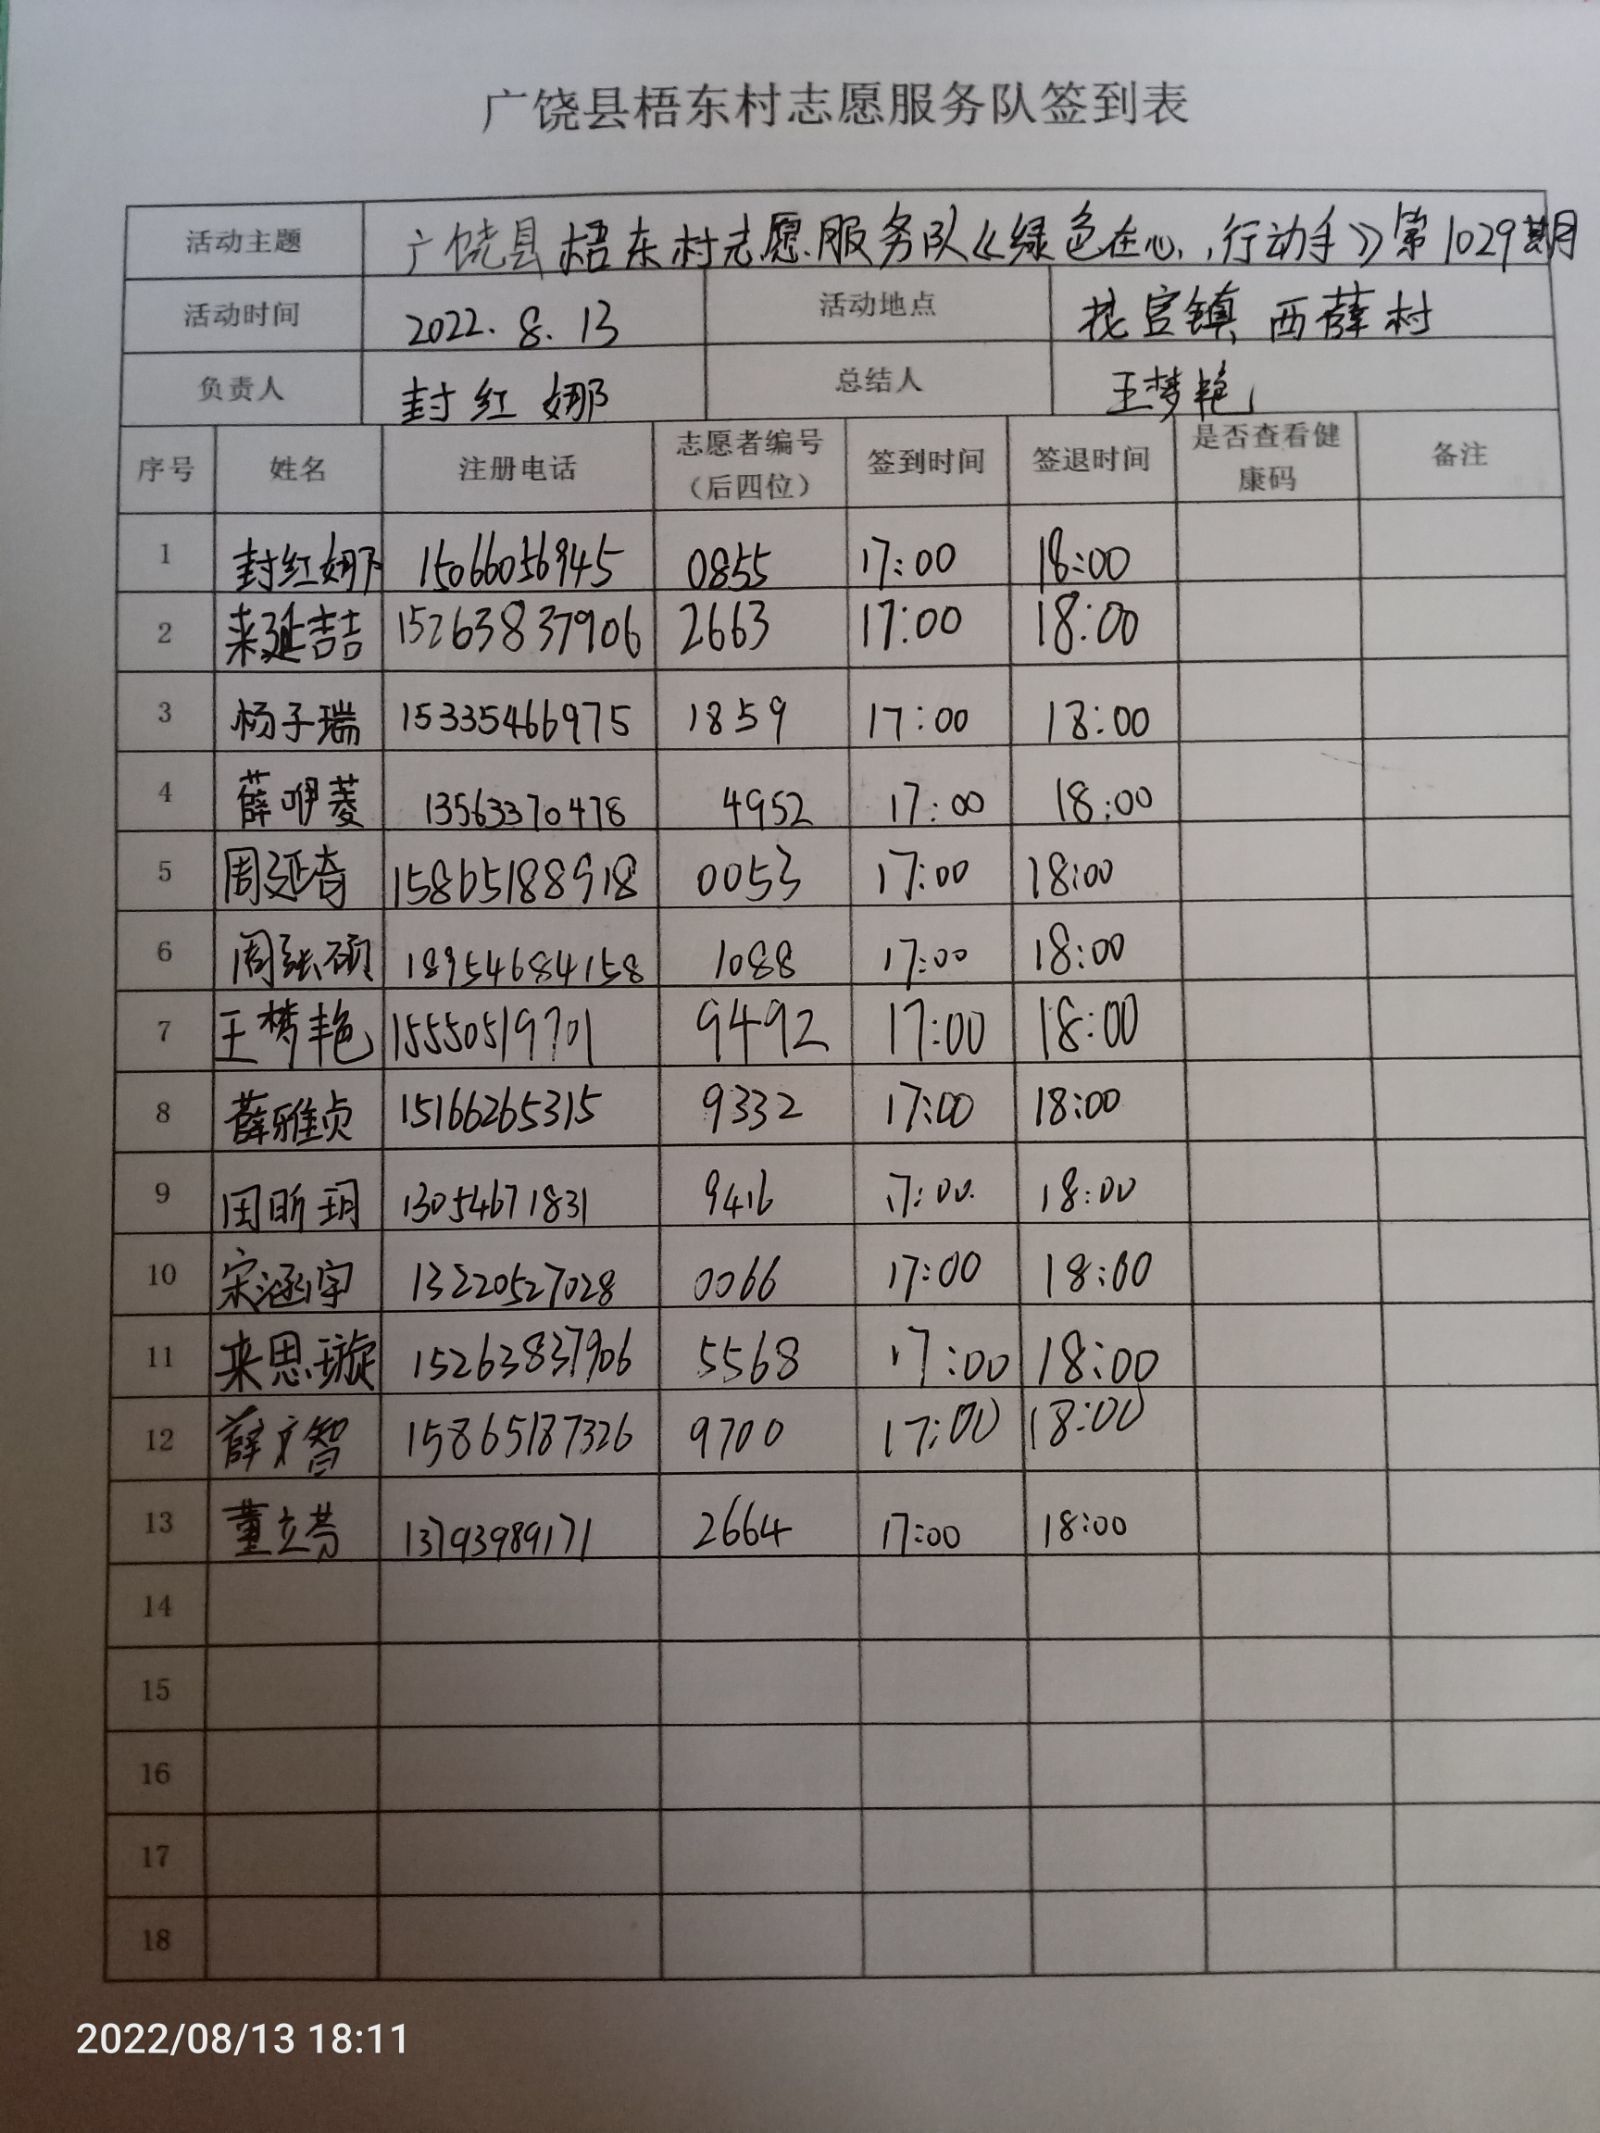 广饶县梧东村志愿服务队签到表
活动主题 广饶县梧东村志愿服务队《绿色在心,行动手》第1029期
活动时间 2022.8.13 活动地点 花官镇 西薛村
负责人 封红娜 总结人 王梦艳
序号 姓名 注册电话 志愿者编号(后四位) 签到时间 签退时间 是否查看健康码 备注
1 封红娜 15066056945 0855 17:00 18:00
2 来延喆 15263837906 2663 17:00 18:00
3 杨子瑞 15335466975 1859 17:00 18:00
4 薛咿菱 13563370478 4952 17:00 18:00
5 周延奇 15865188918 0053 17:00 18:00
6 周张硕 18954684158 1088 17:00 18:00
7 王梦艳 15550519701 9492 17:00 18:00
8 薛雅贞 15166265315 9332 17:00 18:00
9 田昕玥 13054671831 9416 17:00 18:00
10 宋涵宇 13220527028 0066 17:00 18:00
11 来思璇 15263837906 5568 17:00 18:00
12 薛文智 15865187326 9700 17:00 18:00
13 董立芳 13793989171 2664 17:00 18:00
14
15
16
17
18
2022/08/13 18:11